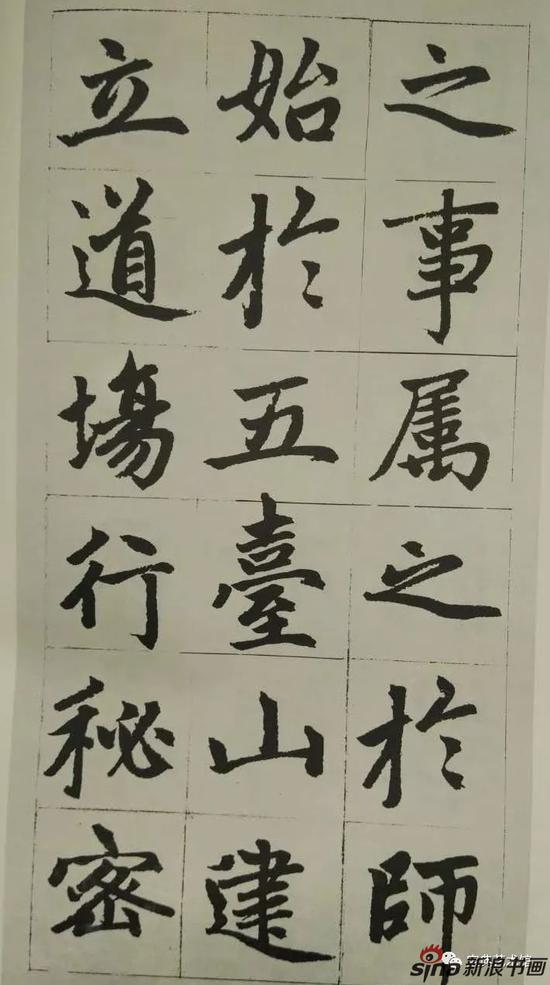 之事属之於師
始於五臺山建
立道場行秘密
sina新浪书画